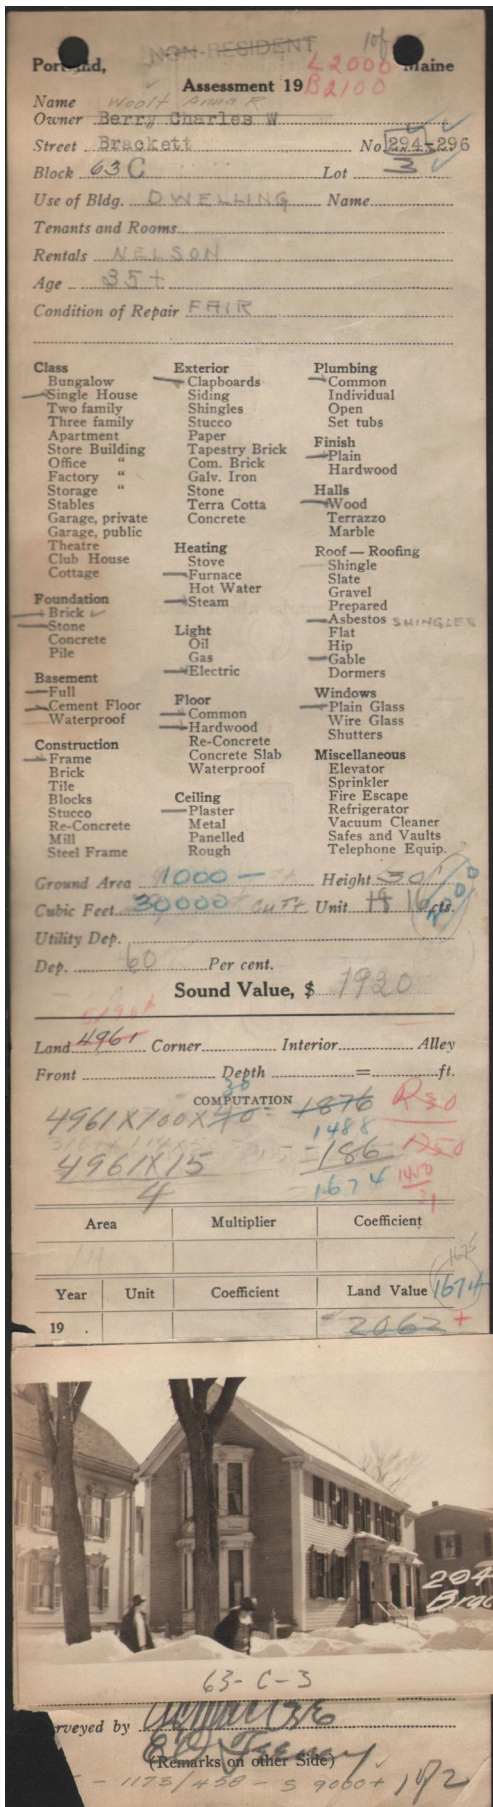 NON-RESIDENT 1 of
L 2000
Portland, Maine
Assessment 19 B 2100
Name Woolf Anna R
Owner Berry Charles W
Street Brackett No 294-296
Block 63 C Lot 3
Use of Bldg. DWELLING Name
Tenants and Rooms
Rentals NELSON
Age 35+
Condition of Repair FAIR
Class
Bungalow
Single House
Two family
Three family
Apartment
Store Building
Office "
Factory "
Storage "
Stables
Garage, private
Garage, public
Theatre
Club House
Cottage
Foundation
Brick
Stone
Concrete
Pile
Basement
Full
Cement Floor
Waterproof
Construction
Frame
Brick
Tile
Blocks
Stucco
Re-Concrete
Mill
Steel Frame
Exterior
Clapboards
Siding
Shingles
Stucco
Paper
Tapestry Brick
Com. Brick
Galv. Iron
Stone
Terra Cotta
Concrete
Heating
Stove
Furnace
Hot Water
Steam
Light
Oil
Gas
Electric
Floor
Common
Hardwood
Re-Concrete
Concrete Slab
Waterproof
Ceiling
Plaster
Metal
Panelled
Rough
Plumbing
Common
Individual
Open
Set tubs
Finish
Plain
Hardwood
Halls
Wood
Terrazzo
Marble
Roof — Roofing
Shingle
Slate
Gravel
Prepared
Asbestos SHINGLES
Flat
Hip
Gable
Dormers
Windows
Plain Glass
Wire Glass
Shutters
Miscellaneous
Elevator
Sprinkler
Fire Escape
Refrigerator
Vacuum Cleaner
Safes and Vaults
Telephone Equip.
Ground Area 1000 — Height 30
Cubic Feet 30,000 CU FT Unit 16 cts.
Utility Dep.
Dep. 60 Per cent.
Sound Value, $ 1920
Land 4961 Corner Interior Alley
Front Depth = ft.
30
COMPUTATION
4961 X 100 X 40 = 1876 R 30
1488
4961 X 15 = 186 1250
4 1674 1450
21
Area Multiplier Coefficient
1675
Year Unit Coefficient Land Value 1674
19 . 2062 +
294
Brac
63-C-3
rveyed by
(Remarks on other Side)
- 1173/458 - S 9000+ 1 of 2